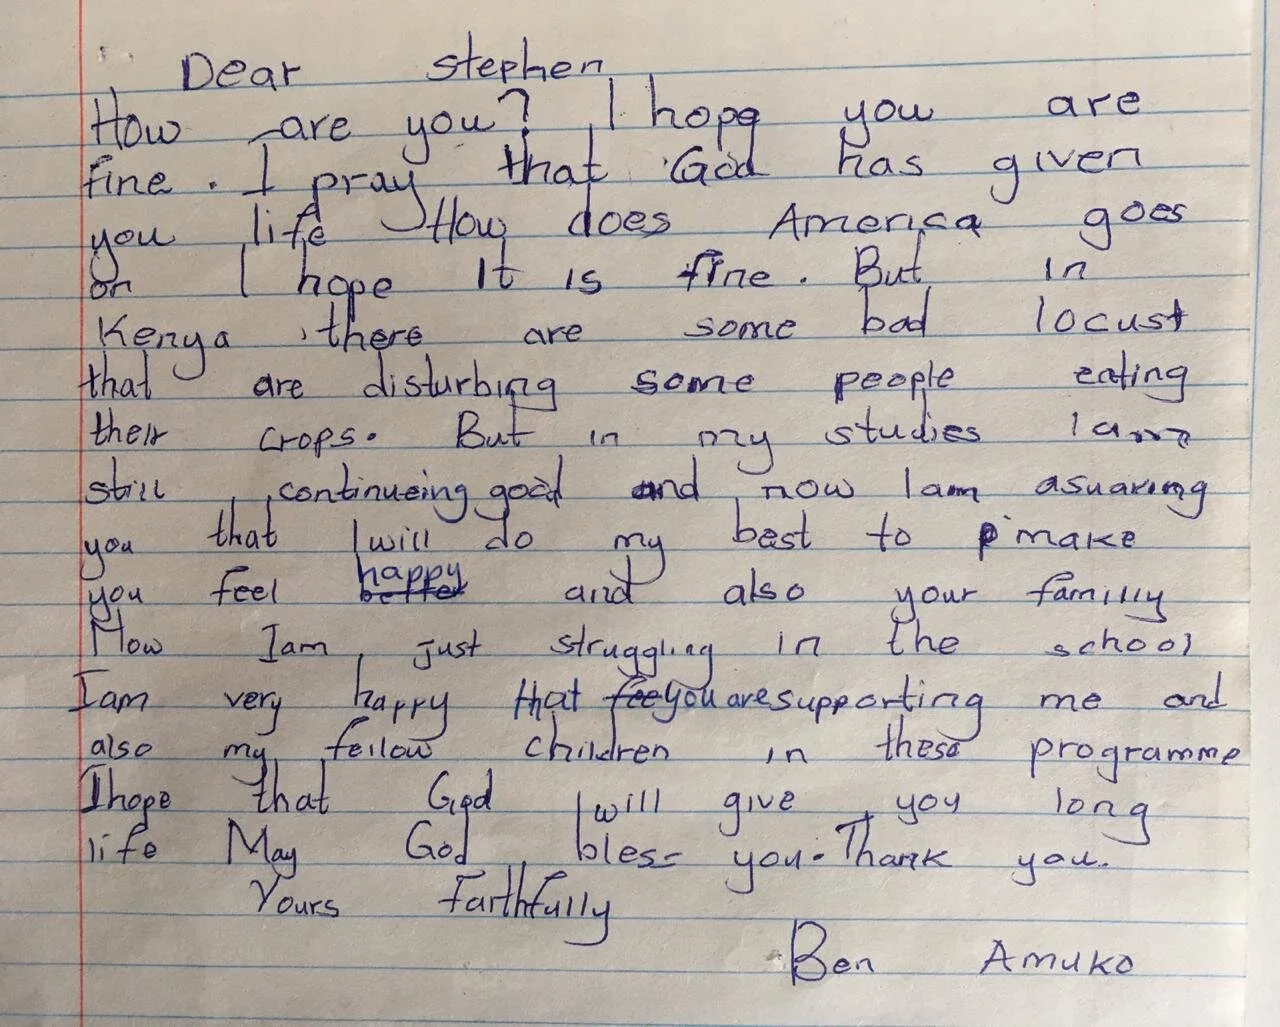 Dear stephen
How are you? I hope you are
fine. I pray that God has given
you life How does America goes
on I hope It is fine. But in
Kenya there are some bad locust
that are disturbing some people eating
their crops. But in my studies I am
still continueing good and now I am asuaring
you that I will do my best to make
you feel happy and also your familly
Now I am just struggling in the school
I am very happy that you are supporting me and
also my fellow children in these programme
I hope that God will give you long
life May God bless you. Thank you.
Yours faithfully
Ben Amuko